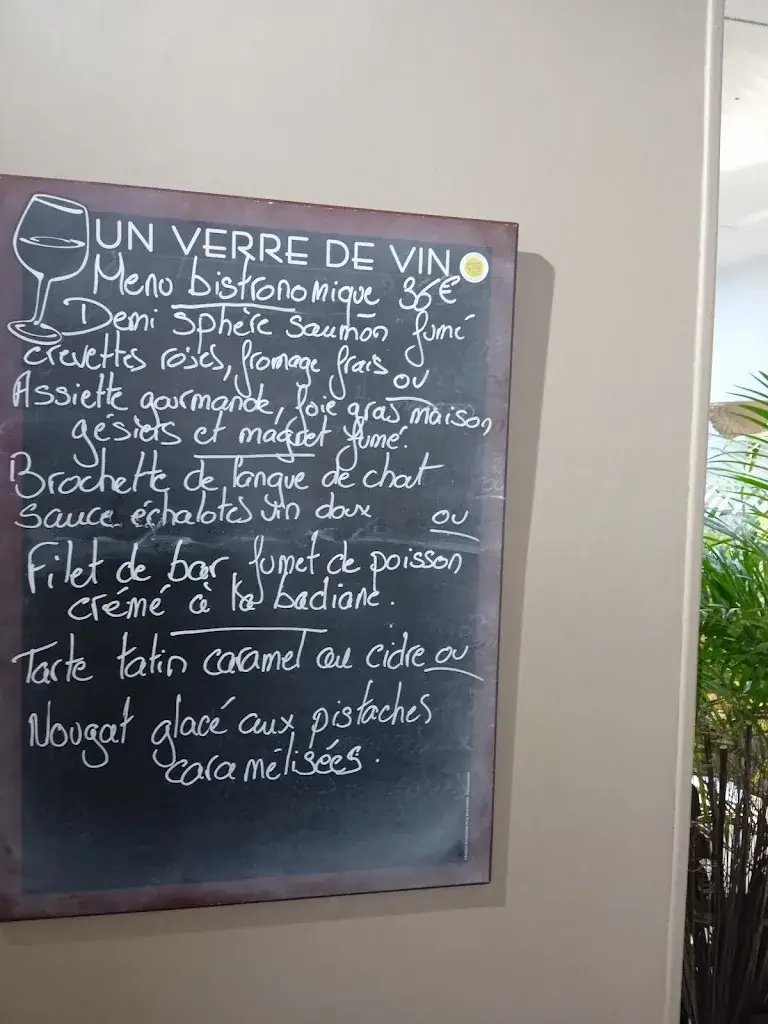 UN VERRE DE VIN
Menu bistronomique 36€
Demi sphère saumon fumé
crevettes roses, fromage frais ou
Assiette gourmande, foie gras maison
gésiers et magret fumé.
Brochette de langue de chat
sauce échalotes vin doux ou
Filet de bar, fumet de poisson
crémé à la badiane.
Tarte tatin caramel au cidre ou
Nougat glacé aux pistaches
caramélisées.